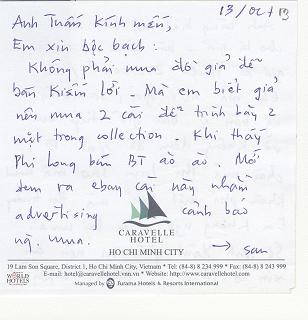 13/Oct/13
Anh Tuấn kính mến,
Em xin bộc bạch:
Không phải mua đồ giả để
bán kiếm lời. Mà em biết giả
nên mua 2 cái để trình bày 2
mặt trong collection. Khi thấy
Phi Long bán BT ào ào. Mới
đem ra ebay cái này nhằm
advertising cảnh báo
ng. mua.
→ sau
CARAVELLE
HOTEL
HO CHI MINH CITY
19 Lam Son Square, District 1, Ho Chi Minh City, Vietnam * Tel: (84-8) 8 234 999 * Fax: (84-8) 8 243 999
E-mail: hotel@caravellehotel.vnn.vn * Website: http://www.caravellehotel.com
Managed by Furama Hotels & Resorts International
WORLD
HOTELS